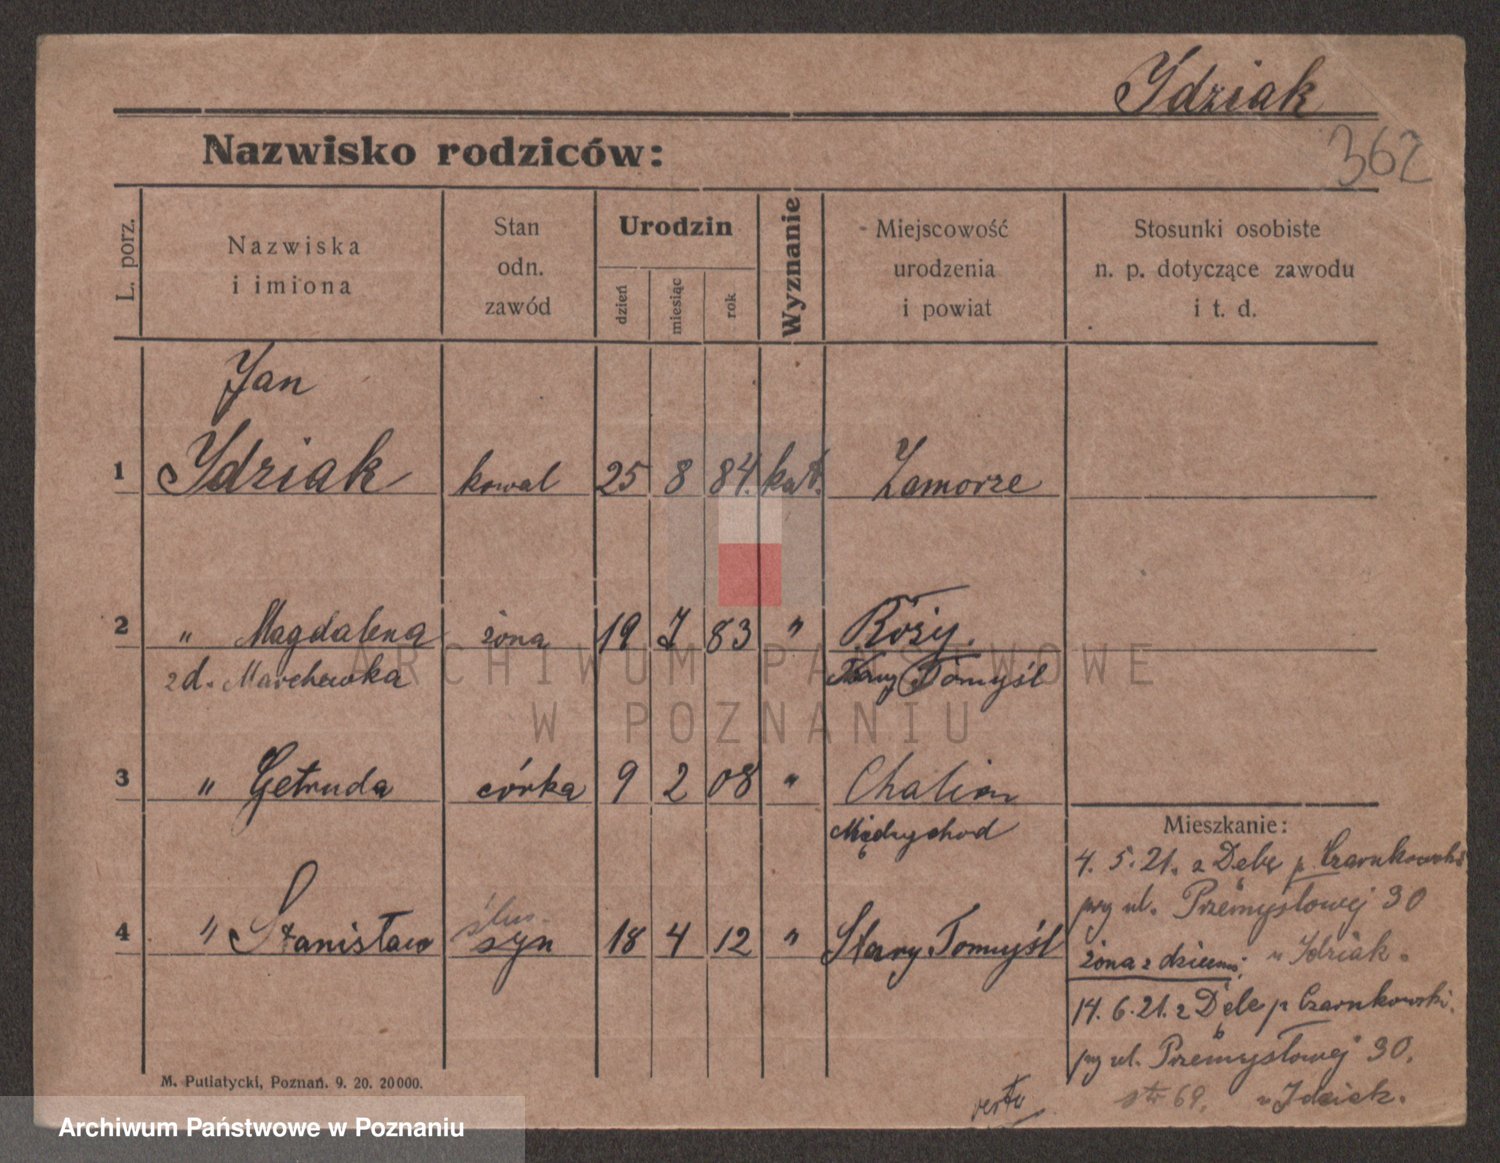 Idziak
362
Nazwisko rodziców:
L. porz.
Nazwiska
i imiona
Stan
odn.
zawód
Urodzin
dzień
miesiąc
rok
Wyznanie
Miejscowość
urodzenia
i powiat
Stosunki osobiste
n. p. dotyczące zawodu
i t. d.
Jan
1 Idziak kowal 25 8 84. kat. Zamorze
2 " Magdalena żona 19 7 83 " Róży.
zd. Marchewka Nowy Tomyśl
3 " Getruda córka 9 2 08 " Chalin
Międrychod
ślus.
4 " Stanisław syn 18 4 12 " Stary Tomyśl
Mieszkanie:
4. 5. 21. z Dębe p. Czarnkowski
przy ul. Przemysłowej 30
żona z dziećmi, u Idziak.
14. 6. 21. z Dębe p. Czarnkowski.
przy ul. Przemysłowej 30.
str 69. u Idziak.
verte
M. Putiatycki, Poznań. 9. 20. 20000.
ARCHIWUM PAŃSTWOWE
W POZNANIU
Archiwum Państwowe w Poznaniu